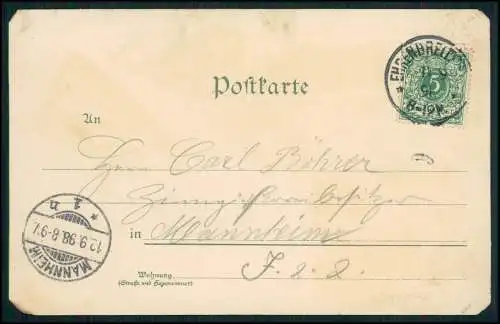 EHRENBREITS
5
8-12N.
Postkarte
An
Herrn Carl Böhrer
in Mannheim
J. 2. 2.
Wohnung
(Straße und Hausnummer)
* 1 n *
12.9.98.8-9V.
MANNHEIM